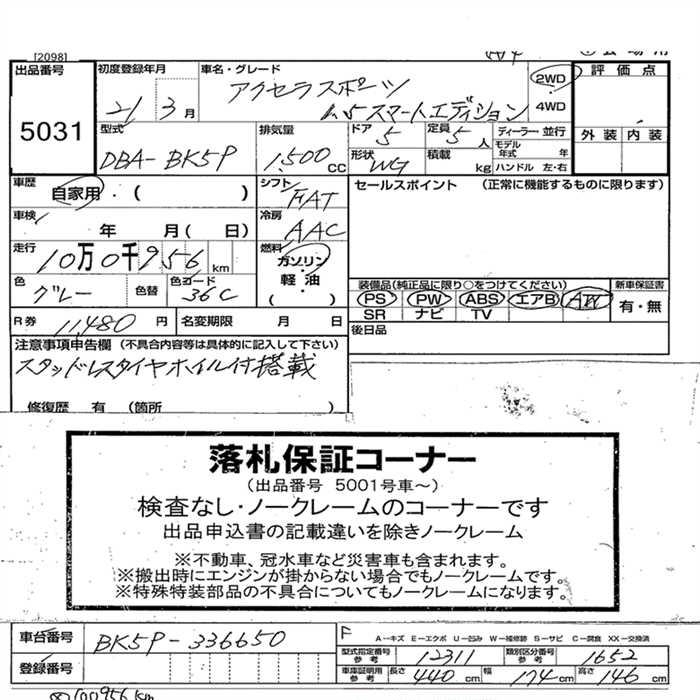 [2098]
出品番号
5031
初度登録年月
21 3 月
車名・グレード
アクセラスポーツ
1.5スマートエディション
2WD
4WD
評価点
外装 内装
型式
DBA-BK5P
排気量
1,500 CC
ドア 5
定員 5 人
形状 WG
積載 kg
ディーラー・並行
モデル年式 年
ハンドル 左・右
車歴
自家用・( )
シフト
FAT
セールスポイント (正常に機能するものに限ります)
車検
年 月( 日)
冷房
AAC
走行
10万0千956 km
燃料
ガソリン・
軽油
( )
色
グレー
色替
色コード
36C
装備品(純正品に限り○をつけてください)
PS PW ABS エアB AW
SR ナビ TV
新車保証書
有・無
R券 11,480 円
名変期限 月 日
後日品
注意事項申告欄 (不具合内容等は具体的に記入して下さい)
スタッドレスタイヤホイル付搭載
修復歴 有 (箇所 )
落札保証コーナー
(出品番号 5001号車~)
検査なし・ノークレームのコーナーです
出品申込書の記載違いを除きノークレーム
※不動車、冠水車など災害車も含まれます。
※搬出時にエンジンが掛からない場合でもノークレームです。
※特殊特装部品の不具合についてもノークレームになります。
車台番号 BK5P-336650
登録番号
F
A-キズ E-エクボ U-凹み W-補修跡 S-サビ C-腐食 XX-交換済
型式指定番号 参考 12311
類別区分番号 参考 1652
車庫証明用 参考 長さ 440 cm 幅 174 cm 高さ 146 cm
100956km